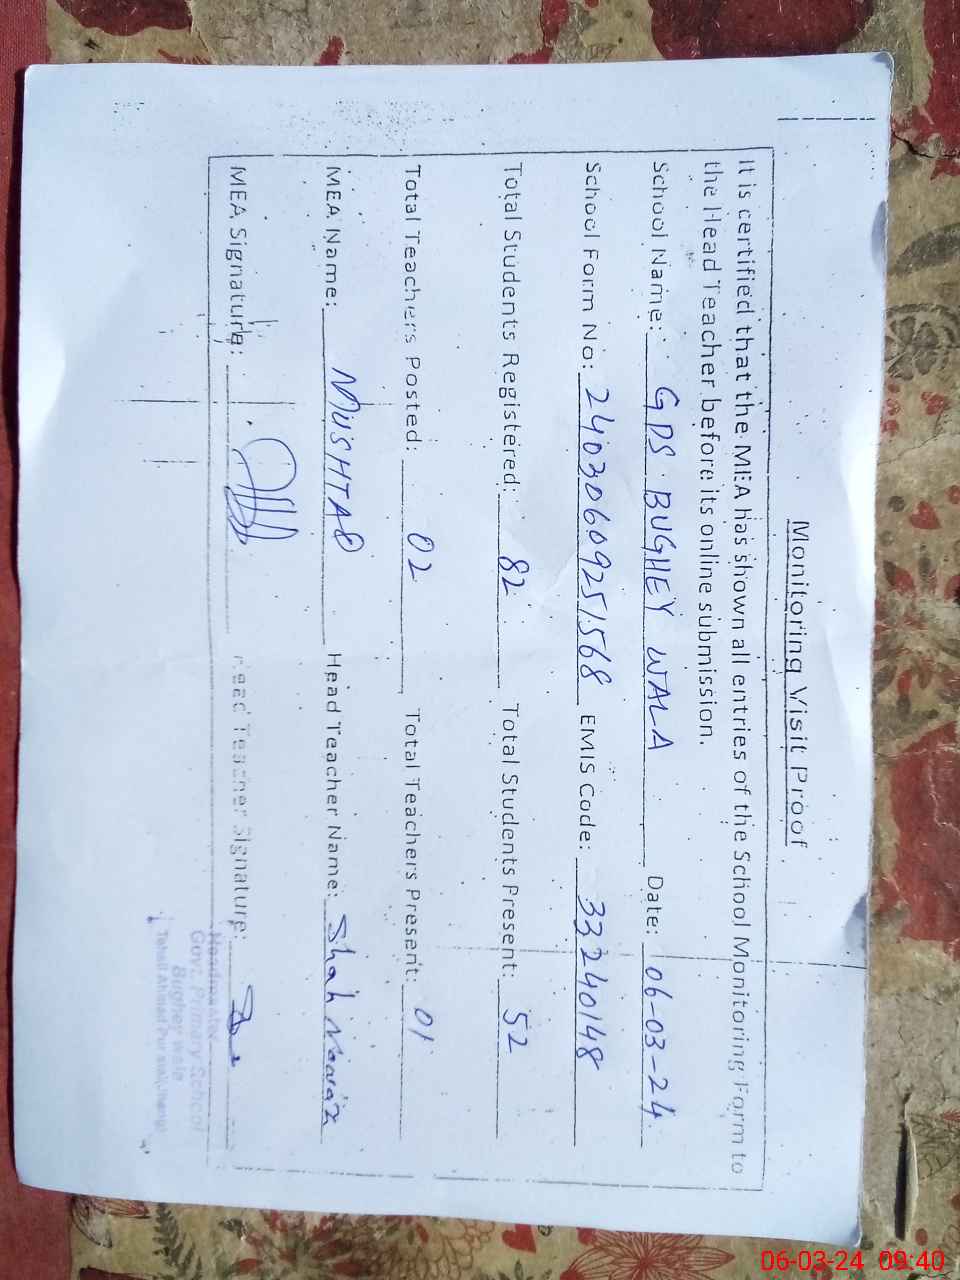 Monitoring Visit Proof
It is certified that the MEA has shown all entries of the School Monitoring Form to
the Head Teacher before its online submission.
School Name: GPS BUGHEY WALA Date: 06-03-24
School Form No: 24030609251568 EMIS Code: 33240148
Total Students Registered: 82 Total Students Present: 52
Total Teachers Posted: 02 Total Teachers Present: 01
MEA Name: MUSHTAQ Head Teacher Name: Shah Nawaz
MEA Signature: Head Teacher Signature:
Headmaster
Govt. Primary School
Bughey wala
06-03-24 09:40